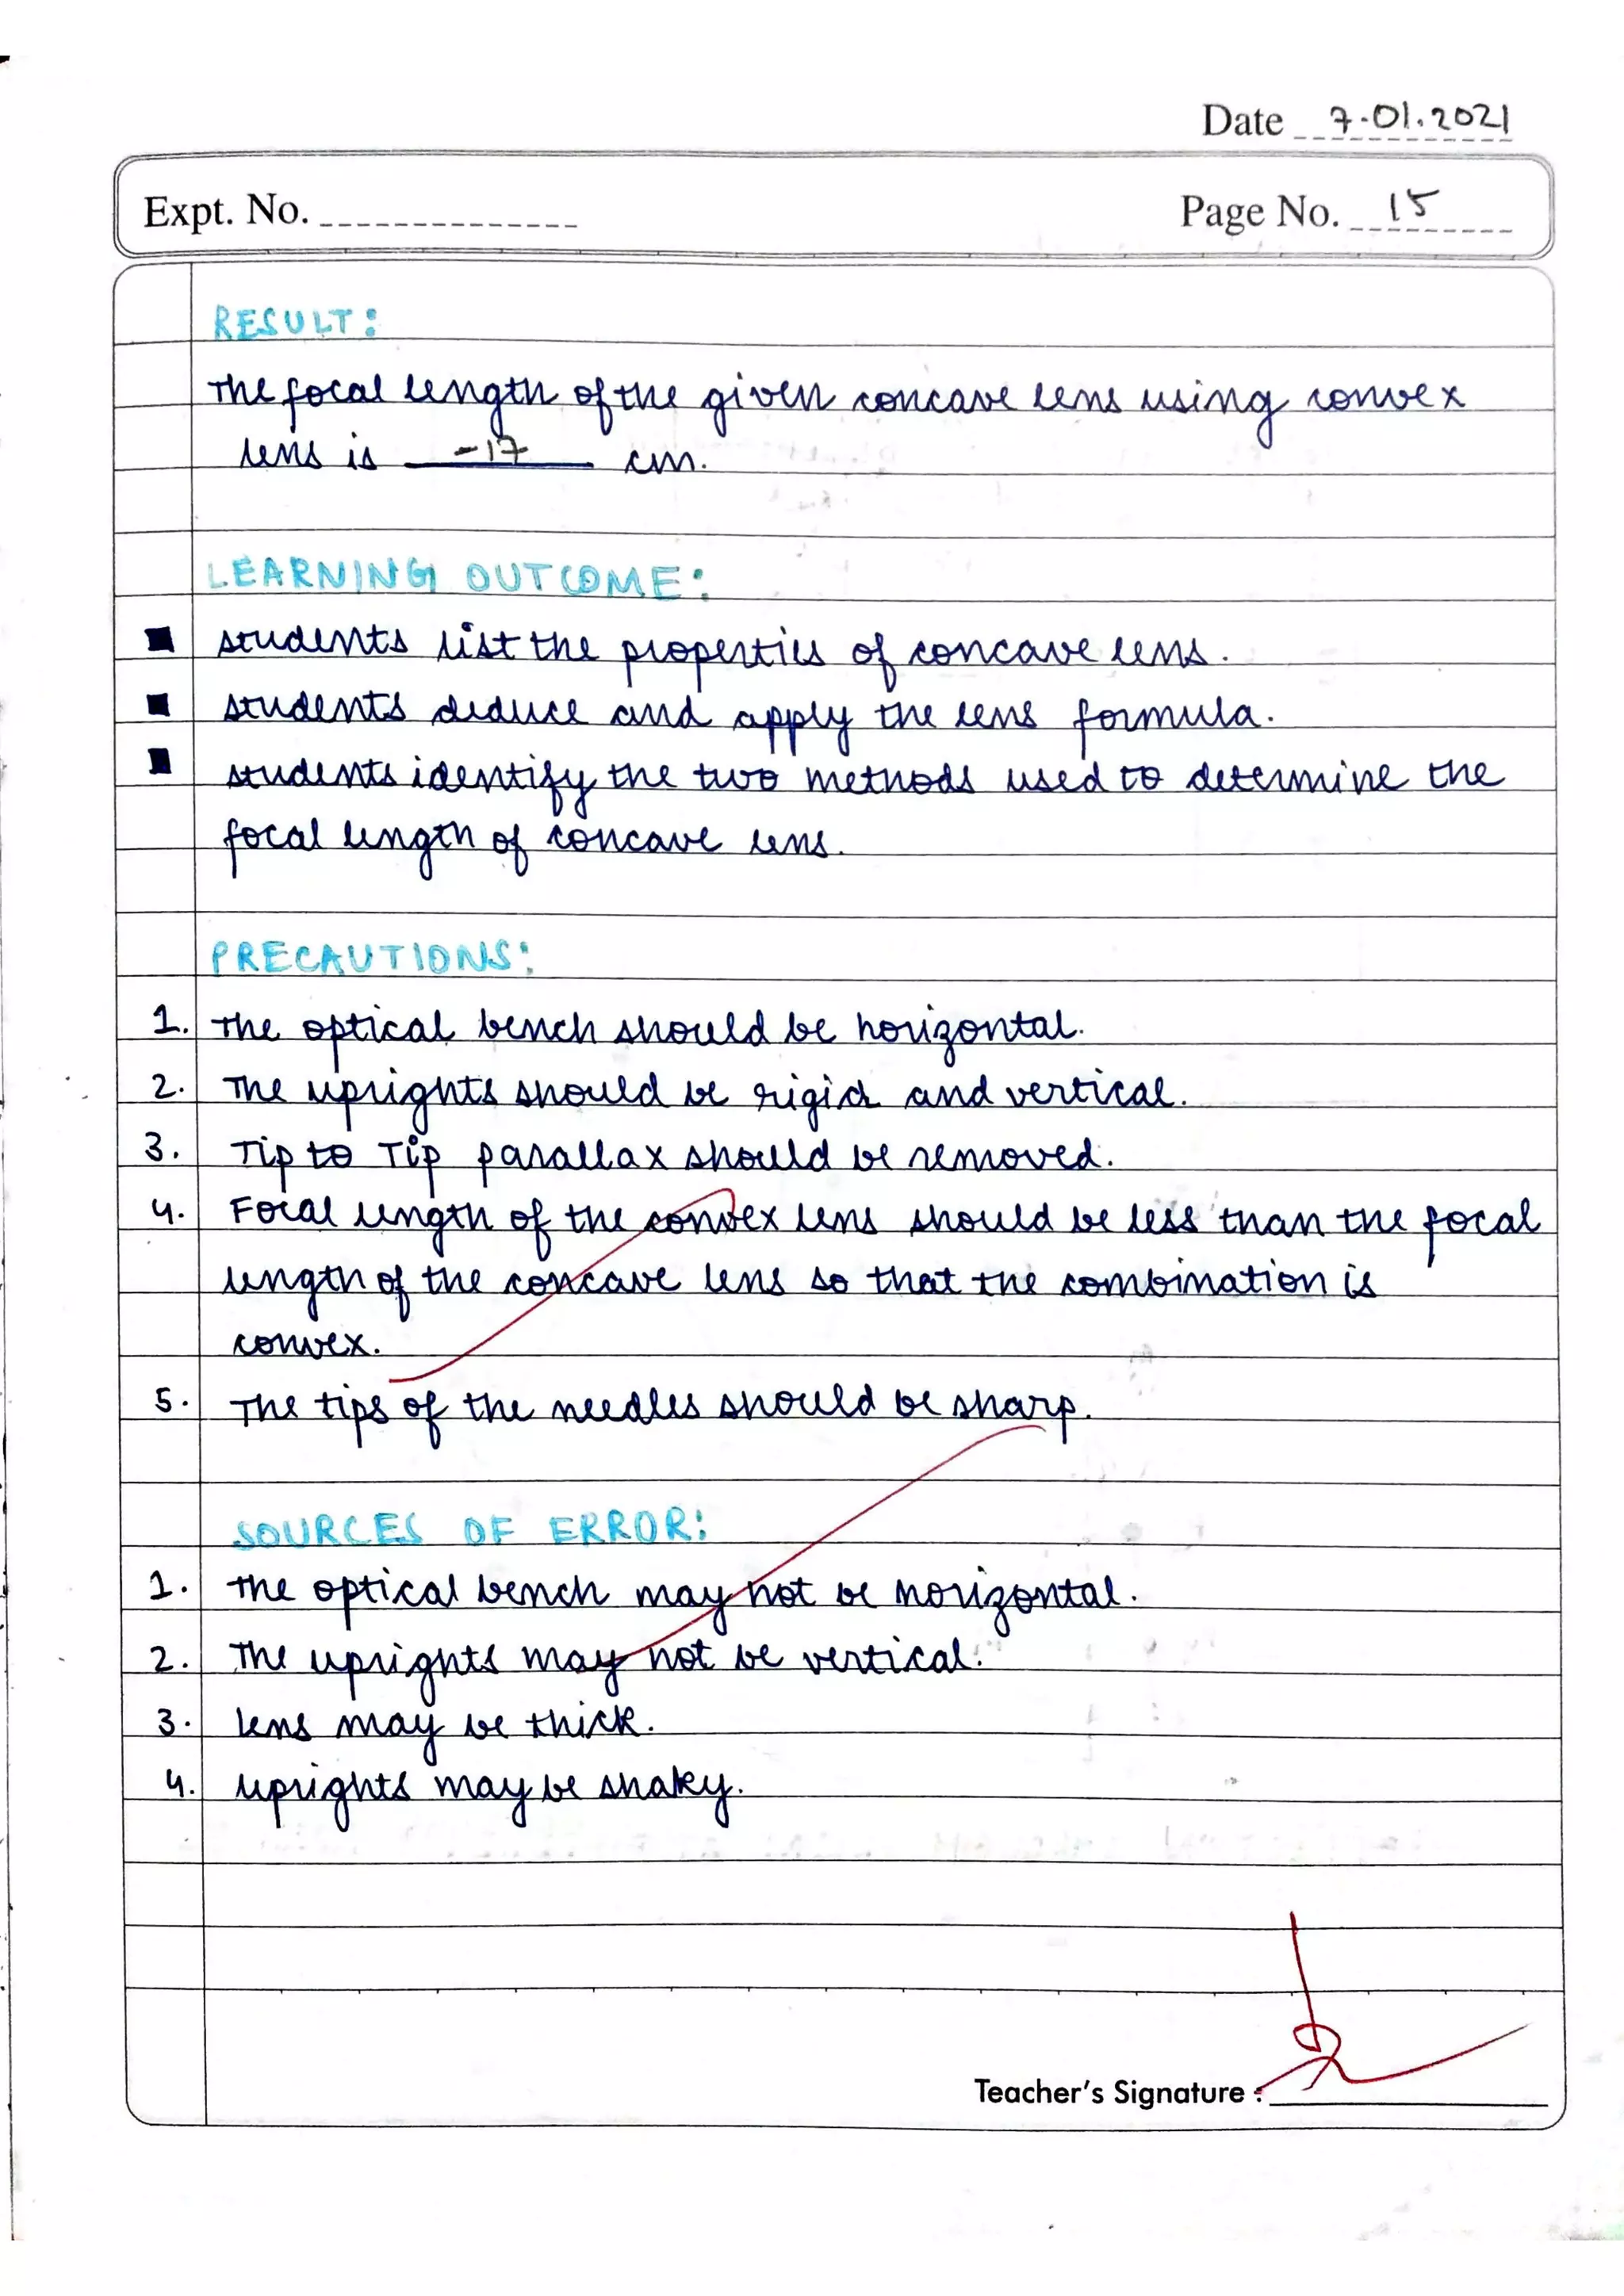 Date 7.01.2021
Expt. No.
Page No. 15
RESULT:
The focal length of the given concave lens using convex
lens is -17 cm.
LEARNING OUTCOME:
students list the properties of concave lens.
students deduce and apply the lens formula.
students identify the two methods used to determine the
focal length of concave lens.
PRECAUTIONS:
1. The optical bench should be horizontal.
2. The uprights should be rigid and vertical.
3. Tip to Tip parallax should be removed.
4. Focal length of the convex lens should be less than the focal
length of the concave lens so that the combination is
convex.
5. The tips of the needles should be sharp.
SOURCES OF ERROR:
1. The optical bench may not be horizontal.
2. The uprights may not be vertical.
3. lens may be thick.
4. uprights may be shaky.
Teacher's Signature :